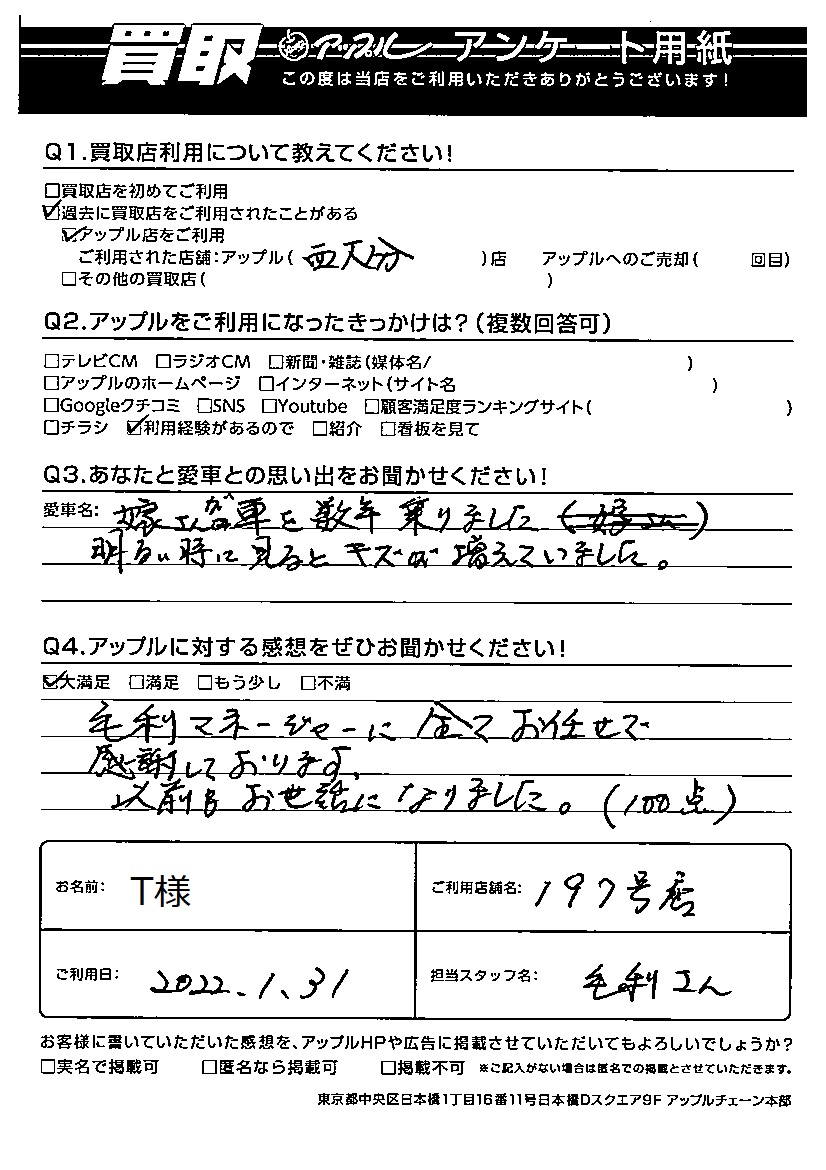 買取 アップル アンケート用紙
この度は当店をご利用いただきありがとうございます!
Q1.買取店利用について教えてください!
□買取店を初めてご利用
☑過去に買取店をご利用されたことがある
☑アップル店をご利用
ご利用された店舗:アップル( 西大分 )店 アップルへのご売却( 回目)
□その他の買取店( )
Q2.アップルをご利用になったきっかけは?(複数回答可)
□テレビCM □ラジオCM □新聞・雑誌(媒体名/ )
□アップルのホームページ □インターネット(サイト名 )
□Googleクチコミ □SNS □Youtube □顧客満足度ランキングサイト( )
□チラシ ☑利用経験があるので □紹介 □看板を見て
Q3.あなたと愛車との思い出をお聞かせください!
愛車名: 嫁さんが車を数年乗りました(嫁さん)
明るい時に見るとキズが増えていました。
Q4.アップルに対する感想をぜひお聞かせください!
☑大満足 □満足 □もう少し □不満
毛利マネージャーに全てお任せで
感謝しております。
以前もお世話になりました。(100点)
お名前: T様 ご利用店舗名: 197号店
ご利用日: 2022.1.31 担当スタッフ名: 毛利さん
お客様に書いていただいた感想を、アップルHPや広告に掲載させていただいてもよろしいでしょうか?
□実名で掲載可 □匿名なら掲載可 □掲載不可 ※ご記入がない場合は匿名での掲載とさせていただきます。
東京都中央区日本橋1丁目16番11号日本橋Dスクエア9F アップルチェーン本部